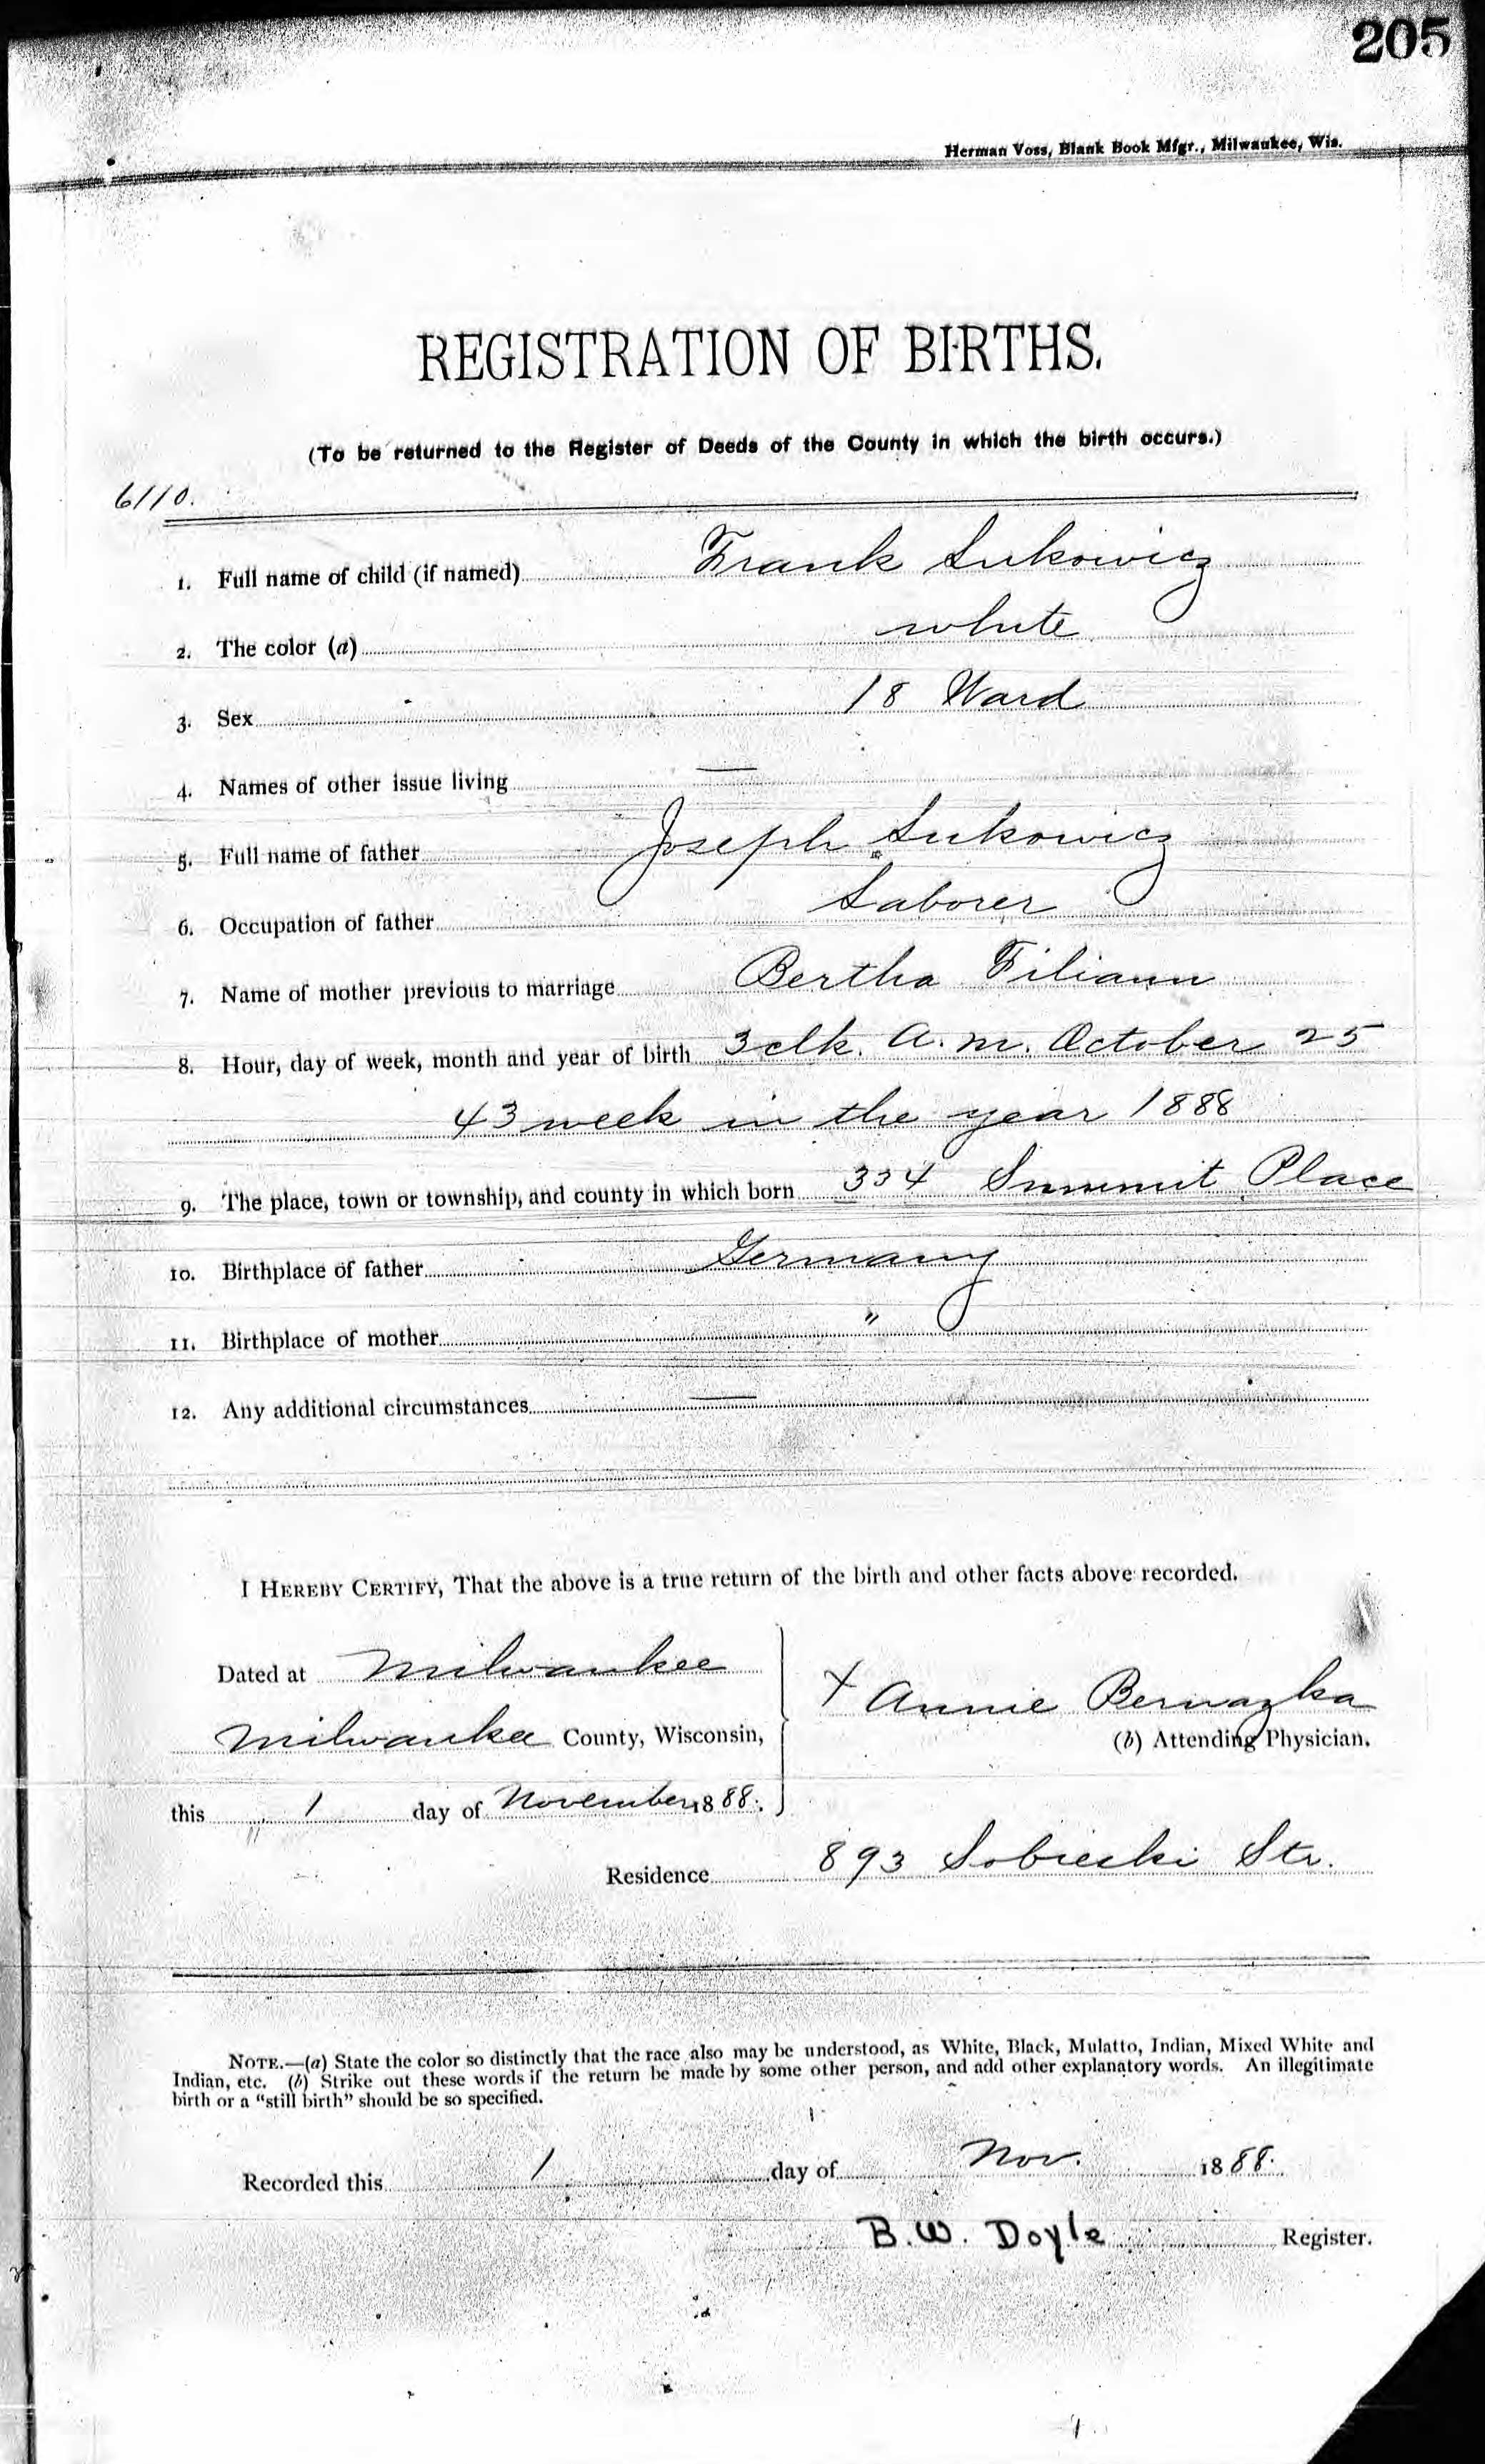 205
Herman Voss, Blank Book Mfgr., Milwaukee, Wis.
REGISTRATION OF BIRTHS.
(To be returned to the Register of Deeds of the County in which the birth occurs.)
6110.
1. Full name of child (if named) Frank Lukowicz
2. The color (a) white
3. Sex 18 Ward
4. Names of other issue living —
5. Full name of father Joseph Lukowicz
6. Occupation of father Laborer
7. Name of mother previous to marriage Bertha Filiann
8. Hour, day of week, month and year of birth 3 clk. a.m. October 25
43 week in the year 1888
9. The place, town or township, and county in which born 334 Summit Place
10. Birthplace of father Germany
11. Birthplace of mother "
12. Any additional circumstances —
I HEREBY CERTIFY, That the above is a true return of the birth and other facts above recorded.
Dated at Milwaukee
X Annie Bernazka
Milwaukee County, Wisconsin,
(b) Attending Physician.
this 1 day of November 1888.
Residence 893 Sobieski Str.
NOTE.—(a) State the color so distinctly that the race also may be understood, as White, Black, Mulatto, Indian, Mixed White and
Indian, etc. (b) Strike out these words if the return be made by some other person, and add other explanatory words. An illegitimate
birth or a "still birth" should be so specified.
Recorded this 1 day of Nov. 1888.
B.W. Doyle Register.